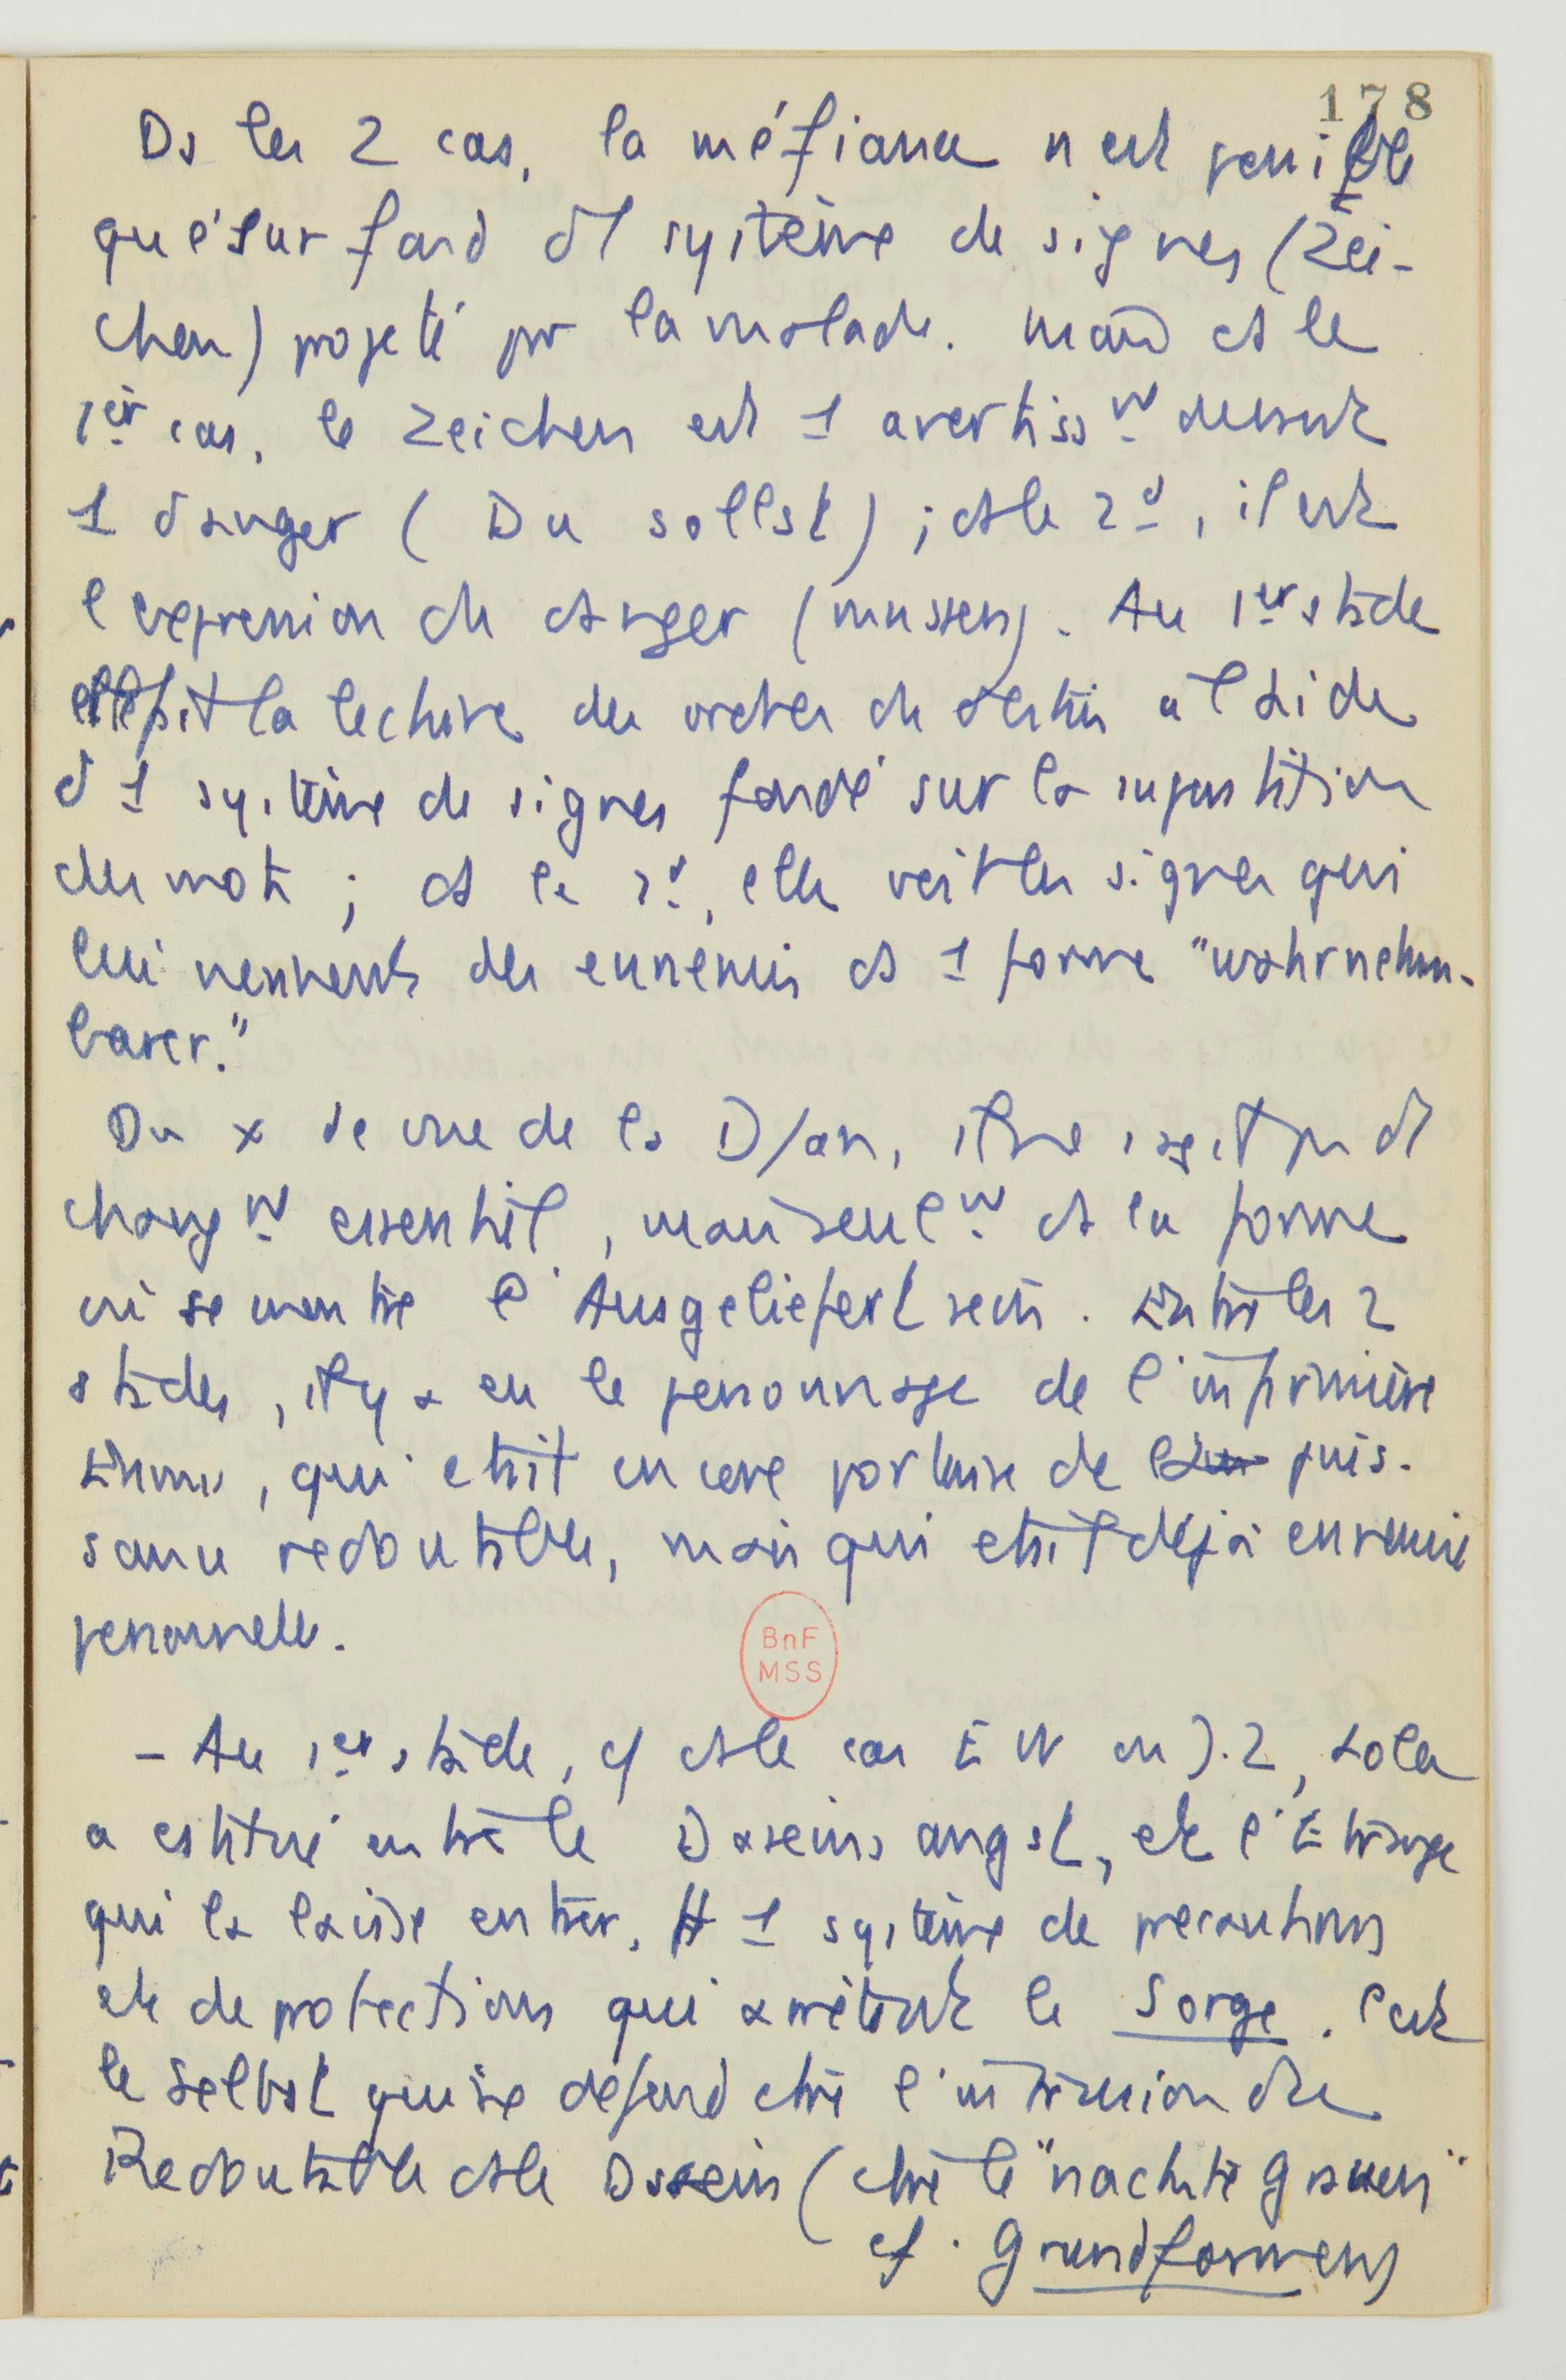 178
Ds les 2 cas, la méfiance n'est possible
que sur fond d'1 système de signes (Zei-
chen) projeté par la malade. Mais ds le
1er cas, le Zeichen est 1 avertisst devant
1 danger (Du sollst) ; ds le 2d, il est
l'expression du danger (mussen). Au 1er stade
elle fait la lecture des ordres du destin à l'aide
d'1 système de signes fondé sur la superstition
des mots ; ds le 2d, elle voit les signes qui
lui viennent des ennemis ds 1 forme "wahrnehm-
barer."
Du x de vue de la D/an, il ne s'agit pas d'1
changt essentiel, mais seult ds la forme
où se montre l'Ausgeliefertsein. Entre les 2
stades, il y a eu le personnage de l'infirmière
Emmi, qui était encore porteuse de puis-
sance redoutable, mais qui était déjà ennemie
personnelle.
BnF
MSS
- Au 1er stade, cf ds le cas E W , Lola
a cstitué entre le Daseinsangst, et l'Etrange
qui la laisse entrer, 1 système de précautions
et de protections qui arrêtent le Sorge. C'est
le Selbst qui se défend ctre l'intrusion du
Redoutable ds le Dasein (ctre le "nackte Grauen"
cf. Grundformen)